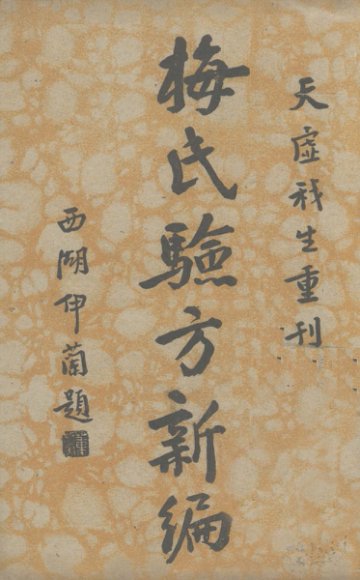 天虚我生重刊
梅氏驗方新編
西湖伊蘭題